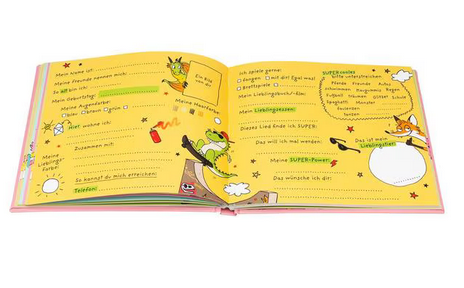 Mein Name ist:
Meine Freunde nennen mich:
So alt bin ich:
Mein Geburtstag:
Meine Augenfarbe:
blau braun grün
Ein Bild von dir
Meine Haarfarbe:
Hier wohne ich:
Zusammen mit:
Meine Lieblings-
Farbe:
So kannst du mich erreichen:
Telefon:
Ich spiele gerne:
drinnen mit dir! Egal was!
Brettspiele
Mein Lieblingsbuch/-film:
Mein Lieblingsessen:
Dieses Lied finde ich SUPER:
Das will ich mal werden:
Meine SUPER-Power:
Das wünsche ich dir!
SUPERcooles
bitte unterstreichen
Pferde Freunde Autos
schwimmen Kaugummis Regen
Fußball Schule
Spaghetti Monster
tanzen
Das ist mein
Lieblingstier: